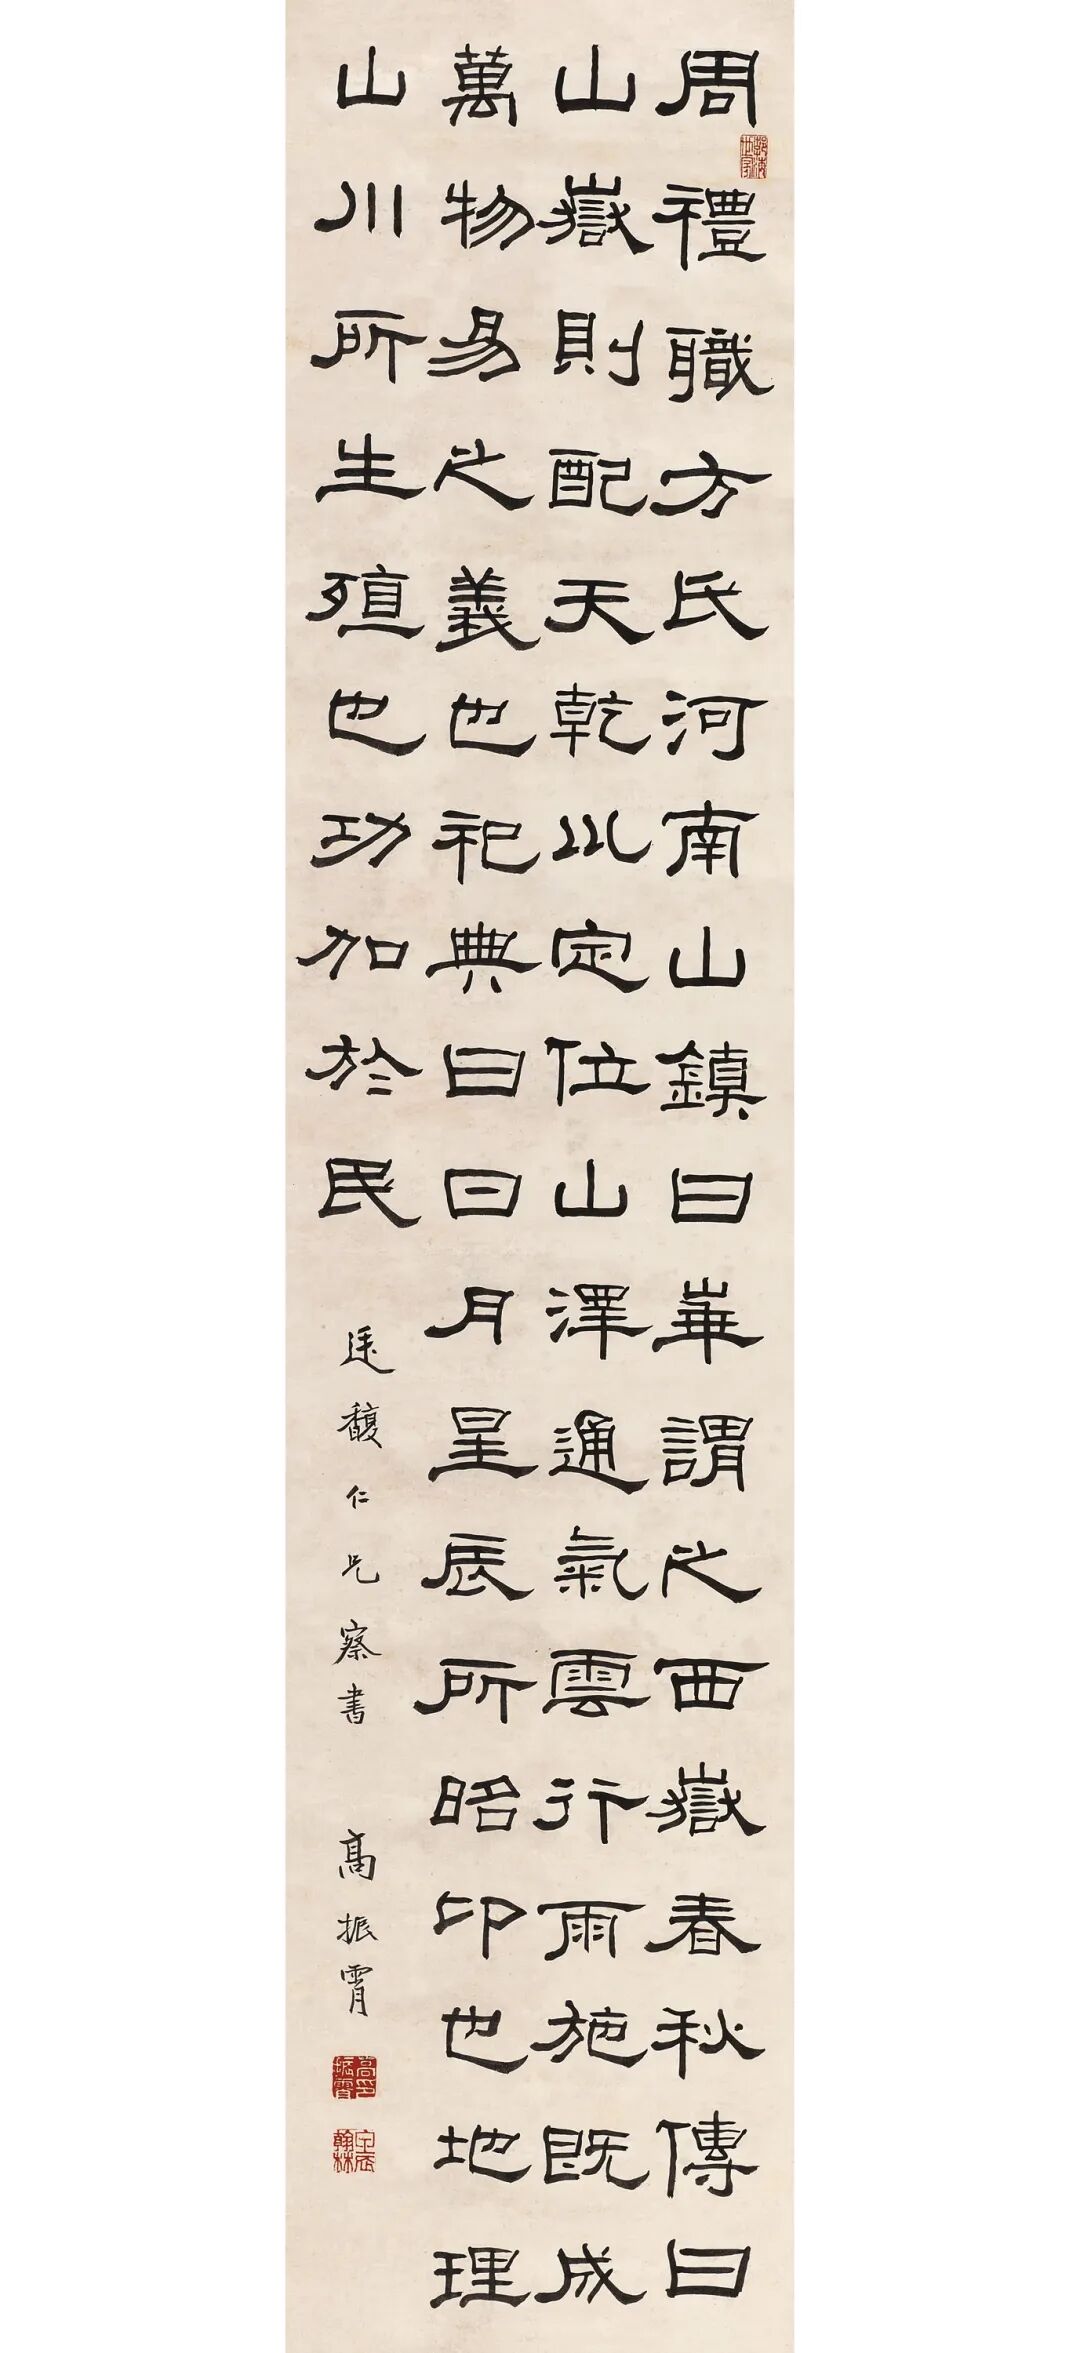 周禮職方氏河南山鎮曰崋謂之西嶽春秋傳曰
山嶽則配天乾㕥定位山澤通氣雲行雨施既成
萬物易之義也祀典曰日月星辰所昭卬也地理
山川所生殖也功加於民
馥仁兄察書
高振霄
高振霄印